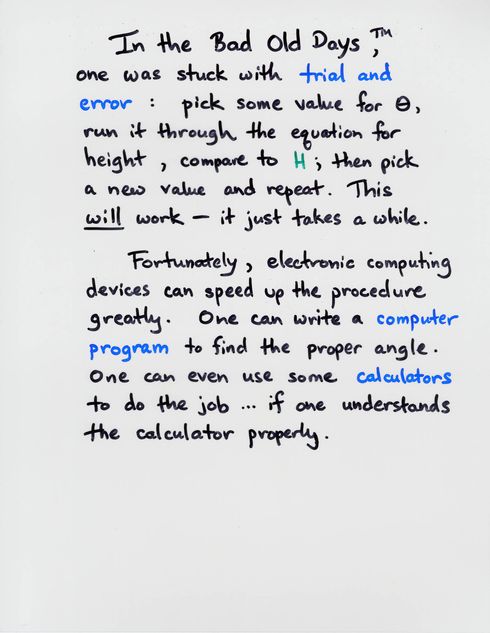 In the Bad Old Days,™
one was stuck with trial and
error : pick some value for Θ,
run it through the equation for
height , compare to H ; then pick
a new value and repeat. This
will work — it just takes a while.
Fortunately , electronic computing
devices can speed up the procedure
greatly. One can write a computer
program to find the proper angle.
One can even use some calculators
to do the job ... if one understands
the calculator properly.